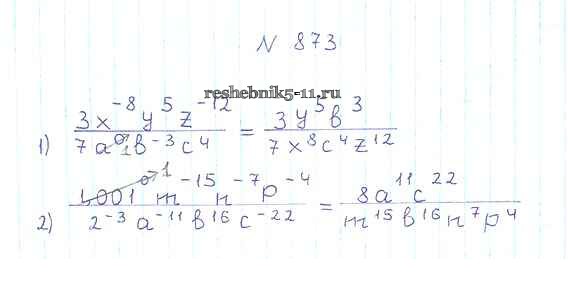 N 873
reshebnik5-11.ru
1) 3x^-8 y^5 z^-12 / 7a^0 b^-3 c^4 = 3y^5 b^3 / 7x^8 c^4 z^12
1
2) 1,001^0 m^-15 n^-7 p^-4 / 2^-3 a^-11 b^16 c^-22 = 8a^11 c^22 / m^15 b^16 n^7 p^4
1